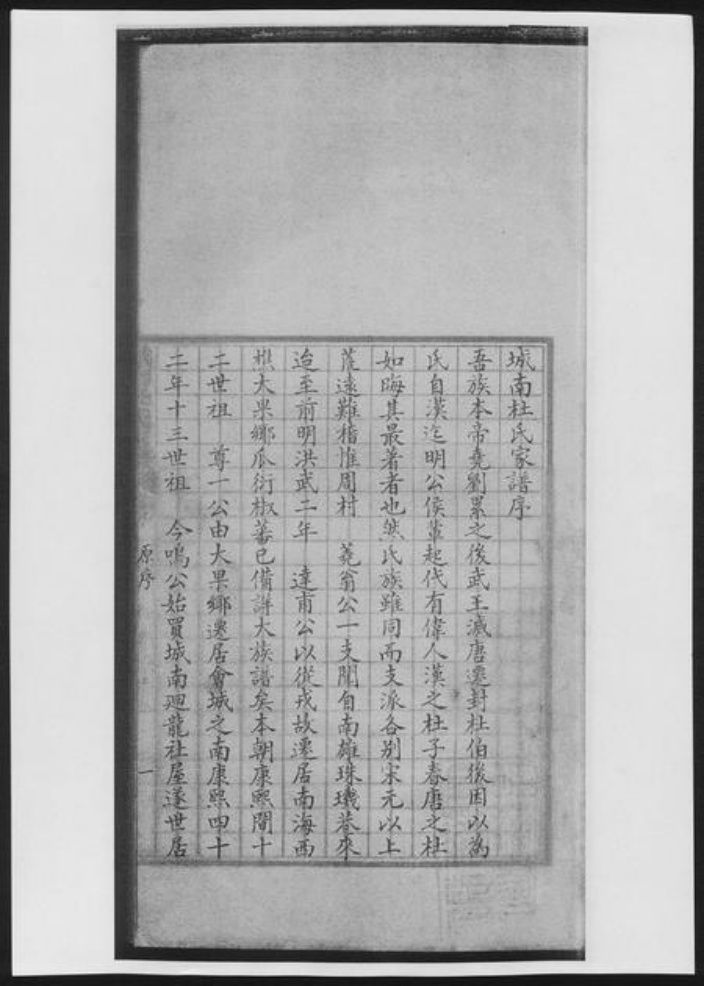 城南杜氏家譜序
吾族本帝堯劉累之後武王滅唐遷封杜伯後因以為
氏自漢迄明公侯輩起代有偉人漢之杜子春唐之杜
如晦其最著者也然氏族雖同而支派各別宋元以上
荒遠難稽惟周村 菟翁公一支開自南雄珠璣巷來
迨至前明洪武二年 達甫公以從戎故遷居南海西
樵大果鄉瓜衍椒蕃已備詳大族譜矣本朝康熙間十
二世祖 尊一公由大果鄉遷居會城之南康熙四十
二年十三世祖 今鳴公始買城南廻龍社屋遂世居
原序 一